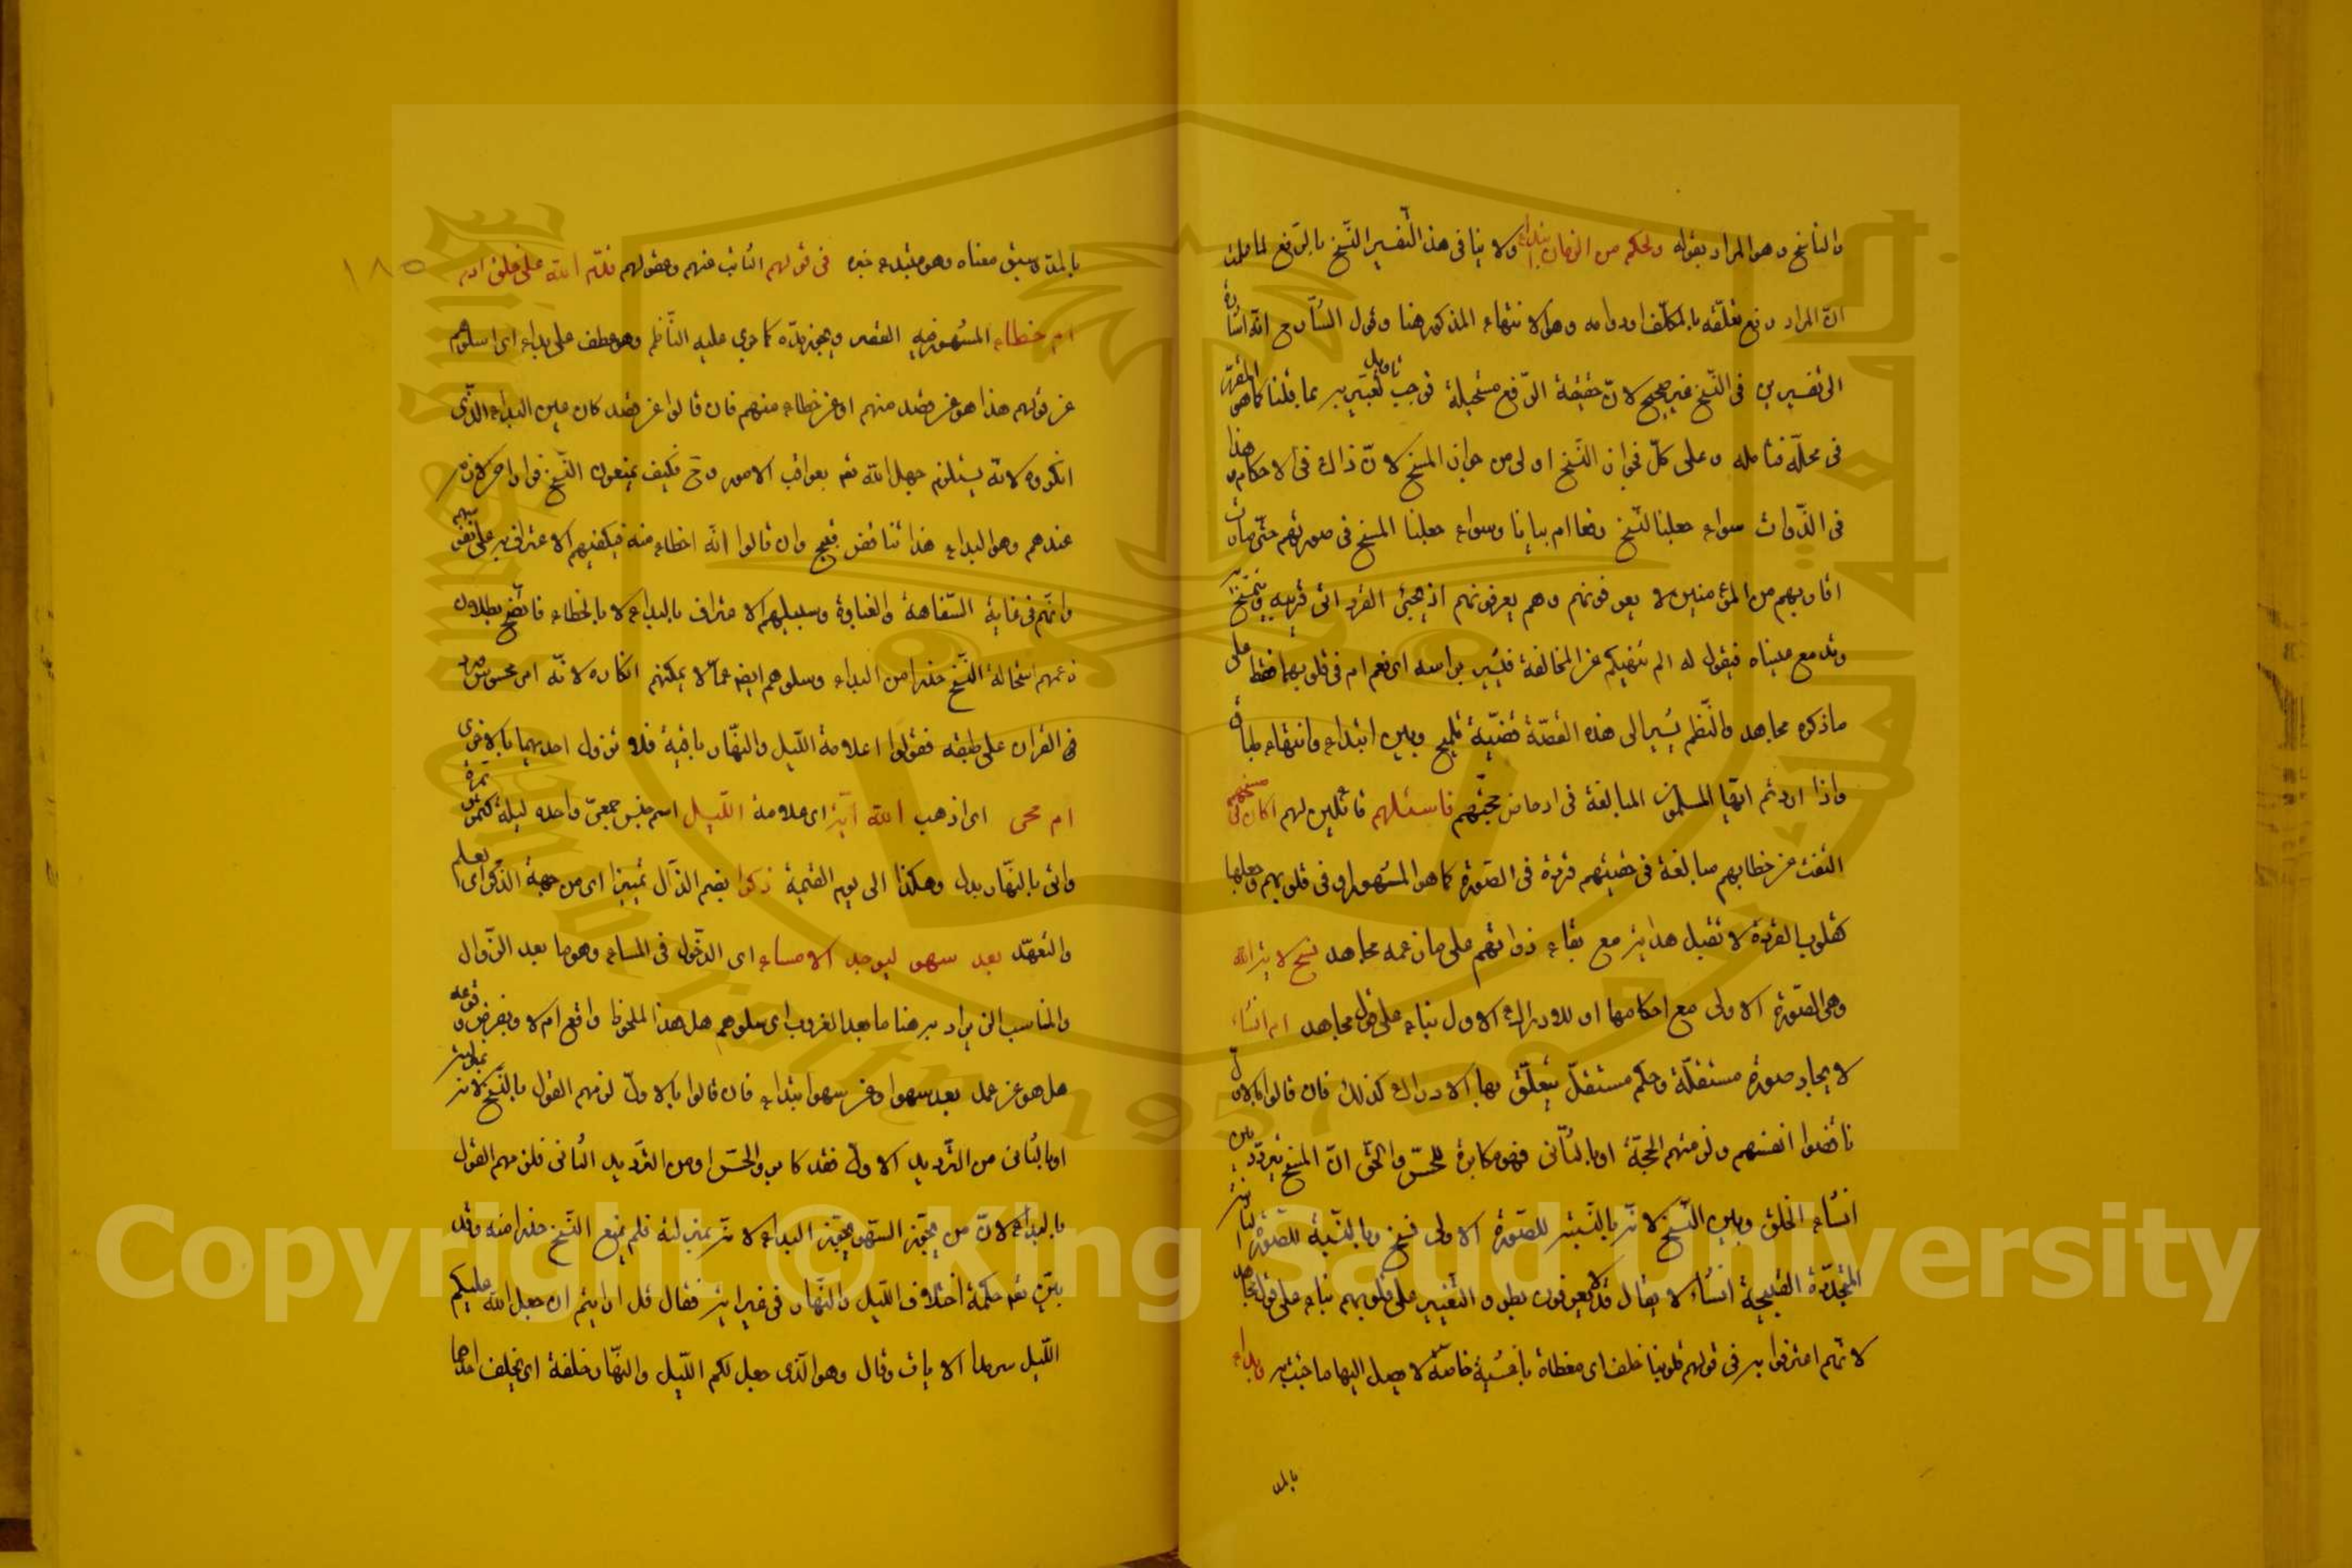 والناسخ وهو المراد بقوله ولحكم من الزمان انتهاء ولا ينافي هذا التفسير النسخ بالرفع لما علمت
ان المراد رفع تعلقه بالمكلف او دوامه وهو الانتهاء المذكور هنا وقول الشارح انه اشارة
الى تفسيرين في النسخ غير صحيح لان حقيقة الرفع مستحيلة فوجب تاويل بما قلنا كما هو المقرر
في محله فتامله وعلى كل فجواز النسخ اولى من جواز المسخ لان ذاك في الاحكام وهذا
في الذوات سواء جعلنا النسخ رفعا ام بيانا وسواء جعلنا المسخ في صورتهم حتى صارت
اقاربهم من المؤمنين لا يعرفونهم وهم يعرفونهم اذ يجيئ القرد الى قريبه
وتدمع عيناه فيقول له الم ننهكم عن المخالفة فيشير براسه اى نعم ام في قلوبهم فقط على
ما ذكره مجاهد والنظم يشير الى هذه القصة وبين ابتداء وانتهاء طباق
واذا اردتم ايها المسلمون المبالغة في ادحاض حجتهم فاسئلهم قائلين لهم اكان في مسخهم
التفت عن خطابهم مبالغة في قردة في الصورة كما هو المشهور او في قلوبهم وجعلها
كقلوب القردة لا تقبل هداية مع بقاء ذواتهم على ما زعمه مجاهد نسخ لاية الله
وهي الصورة الاولى مع احكامها او للادراك الاول بناء على قول مجاهد ام انشاء
لايجاد صورة مستقلة وحكم مستقل يتعلق بها الادراك كذلك فان قالوا بالاول
ناقضوا انفسهم ولزمتهم الحجة او بالثاني فهو مكابرة للحس والحق ان المسخ يتردد بين
انشاء الخلق وبين النسخ لانه بالنسبة للصورة الاولى نسخ وبالنسبة للصورة الثانية
المتجددة القبيحة انشاء لا يقال قد لا يعرفون بطرو التغيير على قلوبهم بناء على قول مجاهد
لانهم اعترفوا به في قولهم قلوبنا غلف اى مغطاة باغشية خاصة لا يصل اليها ما جئت به وبداء
بالمد
١٨٥
بالمد وسبق معناه وهو مبتدء خبره في قولهم الثابت عنهم وهو قولهم ندم الله على خلق ادم
ام خطاء المشهور فيه القصر ويجوز مده كما جرى عليه الناظم وهو عطف على بداء اى اسئلوهم
عن قولهم هذا هو عن قصد منهم او عن خطاء منهم فان قالوا عن قصد كان عين البداء الذى
انكروه لانه يستلزم جهل الله تعه بعواقب الامور وح فكيف يمنعون النسخ
عندهم وهو البداء هذا تناقض قبيح وان قالوا انه اخطاء منه فيكفيهم الاعتراف به على نفسهم
وانهم في غاية السفاهة والغباوة وسبيلهم الاعتراف بالبداء لا بالخطاء فاتضح بطلان
زعمهم استحالة النسخ حذرا من البداء وسلوهم ايضا عما لا يمكنهم انكاره لانه امر محسوس ورد
في القران على طبقه فقولوا اعلامة الليل والنهار باقية فلا تزول احديهما بالاخرى
ام محى اى اذهب الله اية اى علامة الليل اسم جنس جمعى واحده ليلة كتمر وتمرة
واتى بالنهار بدله وهكذا الى يوم القيمة ذكرا بضم الذال تمييز اى من جهة الذكر اى العلم
والتعهد بعد سهو ليوجد الامساء اى الدخول في المساء وهو ما بعد الزوال
والمناسب ان يراد به هنا ما بعد الغروب اى سلوهم هل هذا الملحوظ واقع ام لا وبفرض وقوعه
هل هو عن عمد بعد سهو او عن سهو ابتداء فان قالوا بالاول لزمهم القول بالنسخ لانه بمنزلته
او بالثاني من الترديد الاول فقد كابروا الحس او من الترديد الثاني فلزمهم القول
بالبداء لان من يجوز السهو يجوز البداء لانه بمنزلته فلم يمنع النسخ حذرا منه وقد
بين تعه حكمة اختلاف الليل والنهار في غير اية فقال قل ارايتم ان جعل الله عليكم
الليل سرمدا الايات وقال وهو الذى جعل لكم الليل والنهار خلفة اى يخلف احدهما
Copyright © King Saud University
King Saud University
1957